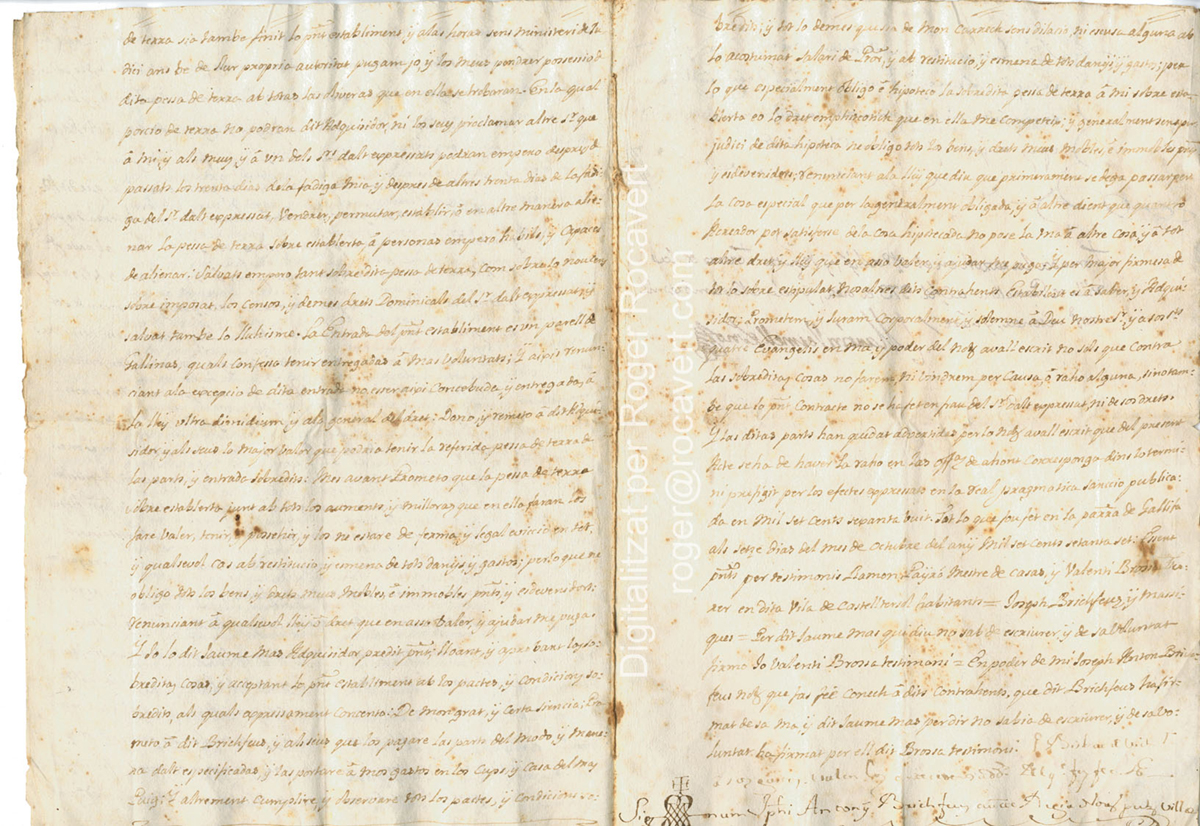 de terra sia tambe finit lo pnt establiment y alas horas sens ministeri de Ju
dici ans be de llur propria autoritat pugam jo, y los meus pendrer possessio de
dita pessa de terra ab totas las diveras que en ella se trobaran. En la qual
porcio de terra no podran dit Adquisidor, ni los seus proclamar altre Sr. que
â mi, y als meus, y â un dels Srs. dalt expressats podran empero despres de
passats los trenta dias de la fadiga mia y despres de altres trenta dias de la fadi
ga del Sr. dalt expressat, Vendrer, permutar, establir, ô en altre manera alie
nar la pessa de terra sobre establerta â personas empero habils, y Capaces
de alienar: Salvats empero tant sobre dita pessa de terra, com sobre lo nou Cens
sobre imposat, los Censos, y demes drets Dominicals del Sr. dalt expressat, y
salvat tambe lo lluhisme. La Entrada del pnt establiment es un parell de
Gallinas, quals Confesso tenir entregadas â mas voluntats; Y aixis renun
ciant ala excepcio de dita entrada no esser aixi Concebuda, y entregada, â
la lley ultra dimidium y ala general del dret: Dono, y remeto â dit Adqui
sidor y als seus lo major valor que podria tenir la referida pessa de terra de
las parts, y entrada sobreditas: Mes avant Prometo que la pessa de terra
sobre establerta junt ab tots los aumens, y milloras que en ella faran los
fare Valer, tenir, y possehir, y los ni estare de ferma y legal eviccio en tot,
y qualsevol cas ab restitucio y esmena de tots danys y gastos; per lo que ne
obligo tots los bens y drets meus mobles ê immobles pnts y esdevenidors:
renunciant â qualsevol lley ô dret que en asso Valer, y ajudar me puga.
Y Jo lo dit Jaume Mas Adquisidor predit pnt, lloant, y aprobant las so
breditas Cosas, y aceptant lo pnt Establiment ab los pactes, y Condicions so
bredits, als quals expressament Concento: De mon grat, y Certa sciencia; Pro
meto â dit Brichfeus, y als seus que los pagare las parts del modo, y mane
ra dalt especificadas y las portare â mos gastos en los Cups, y Casa del Mas
Puig: Y altrement Cumplire, y observare tots los pactes, y Condicions so
bredits; y tot lo demes que sia de mon Carrech sens dilacio, ni escusa alguna ab
lo acostumat salari de Pror, y ab restitucio, y esmena de tots danys y gastos; per
lo que especialment obligo ê hipoteco la sobredita pessa de terra â mi sobre esta
blerta eo lo dret emphiteotich que en ella me Competeix; y generalment sens per
judici de dita hipoteca ne obligo tots los bens, y drets meus mobles, ê immobles pnts
y esdevenidors; renunciant ala lley que diu que primerament se dega passar per
la cosa especial que per la generalment obligada, y â altre dient que quant lo
Acreador pot satisferse de la cosa hipotecada no pose la ma â altre Cosa, y â tot
altre dret, y lley que en asso Valer, y ajudar me puga. Y per major firmesa de
tot lo sobre estipulat Nosaltres dits Contrahents Establint es â saber, y Adqui
sidor Prometem, y Juram Corporalment y solemne â Deu Nostre Sr. y â sos Sts.
quatre Evangelis en ma, y poder del Noty avall escrit no sols que Contra
las sobreditas Cosas no farem, ni vindrem per Causa, ô raho alguna, sino tam
be que lo pnt Contracte no se ha fet en frau del Sr. dalt expressat ni de sos drets.
Y las ditas parts han quedat advertidas per lo Noty avall escrit que del present
Acte se ha de haver la raho en las offas de ahont Corresponga dins lo termi
ni prefigit per los efectes expressats en la Real pragmatica sanccio publica
da en Mil set Cents sexanta vuit. Tot lo que fou fet en la parra. de Gallifa
als setze dias del mes de Octubre del any Mil set Cents setanta set: Essent
pnts per testimonis Ramon Payàs Mestre de Casas, y Valenti Brossa Te
xer en dita Vila de Castelltersol habitants = Joseph Brichfeus, y Massi
ques = Per dit Jaume Mas que diu no sab de escriurer, y de sa Voluntat
firmo Jo Valenti Brossa testimoni = En poder de mi Joseph Anton Brich
feus Noty que fas fèe Conech â dits Contrahents, que dit Brichfeus ha fir
mat de sa ma y dit Jaume Mas per dir no sabia de escriurer, y de sa Vo
luntat, ha firmat per ell dit Brossa testimoni
Sig num Jphi Antony Brichfeus Regia Noty publ. villa
Digitalitzat per Roger Rocavert
roger@rocavert.com